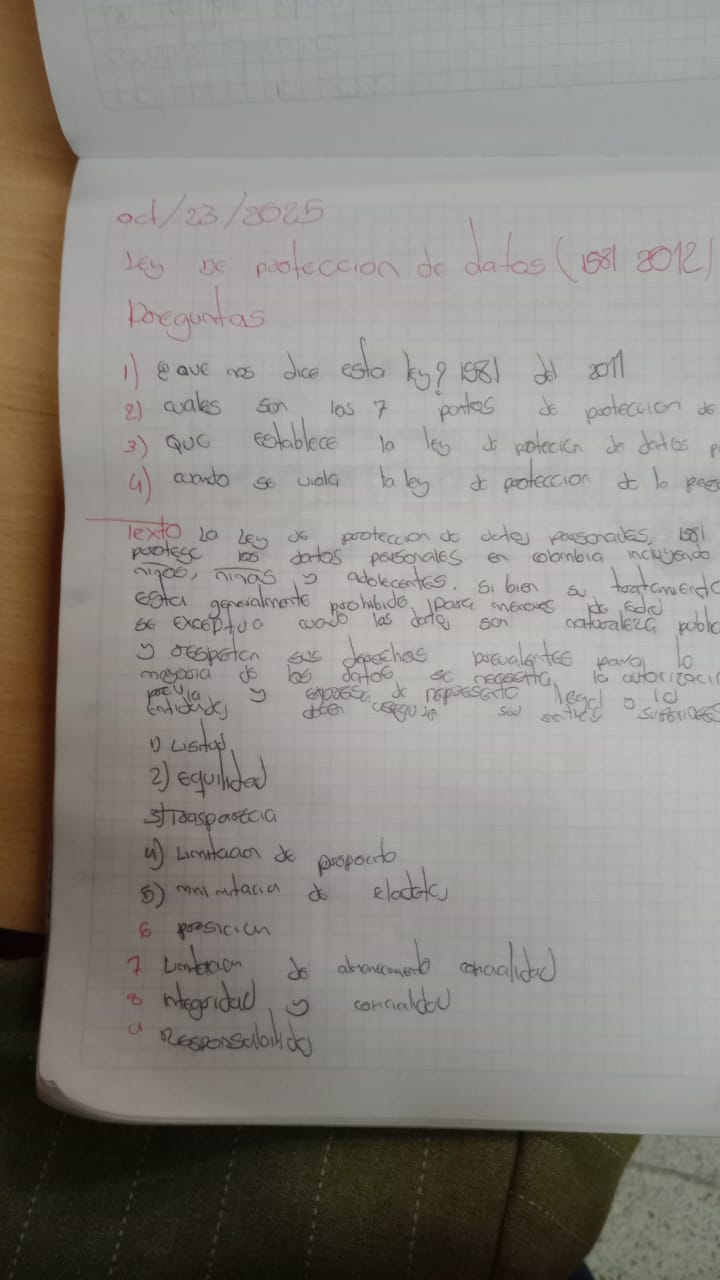 oct/23/2025
Ley De proteccion de datos (1581 2012)
Preguntas
1) que nos dice esta ley? 1581 del 2011
2) cuales son los 7 puntos de proteccion de
3) que establece la ley de proteccion de datos p
4) cuando se viola la ley de proteccion de la pers
Texto La Ley de proteccion de datos personales, 1581
protege los datos personales en colombia incluyendo
niños, niñas y adolecentes. si bien su tratamiento
esta generalmente prohibido para menores de edad
se exceptua cuando los datos son naturaleza publo
y respeten sus derechos prevalentes para lo
mayoria de los datos se necesita la autorizacio
previa y expresa de legal o la
entidades deben
1) Listad
2) equilidad
3) trasparecia
4) Limitacion de proposito
5) de
6 presicion
7 Limitacion de
8 integridad y
9 Responsabilidad